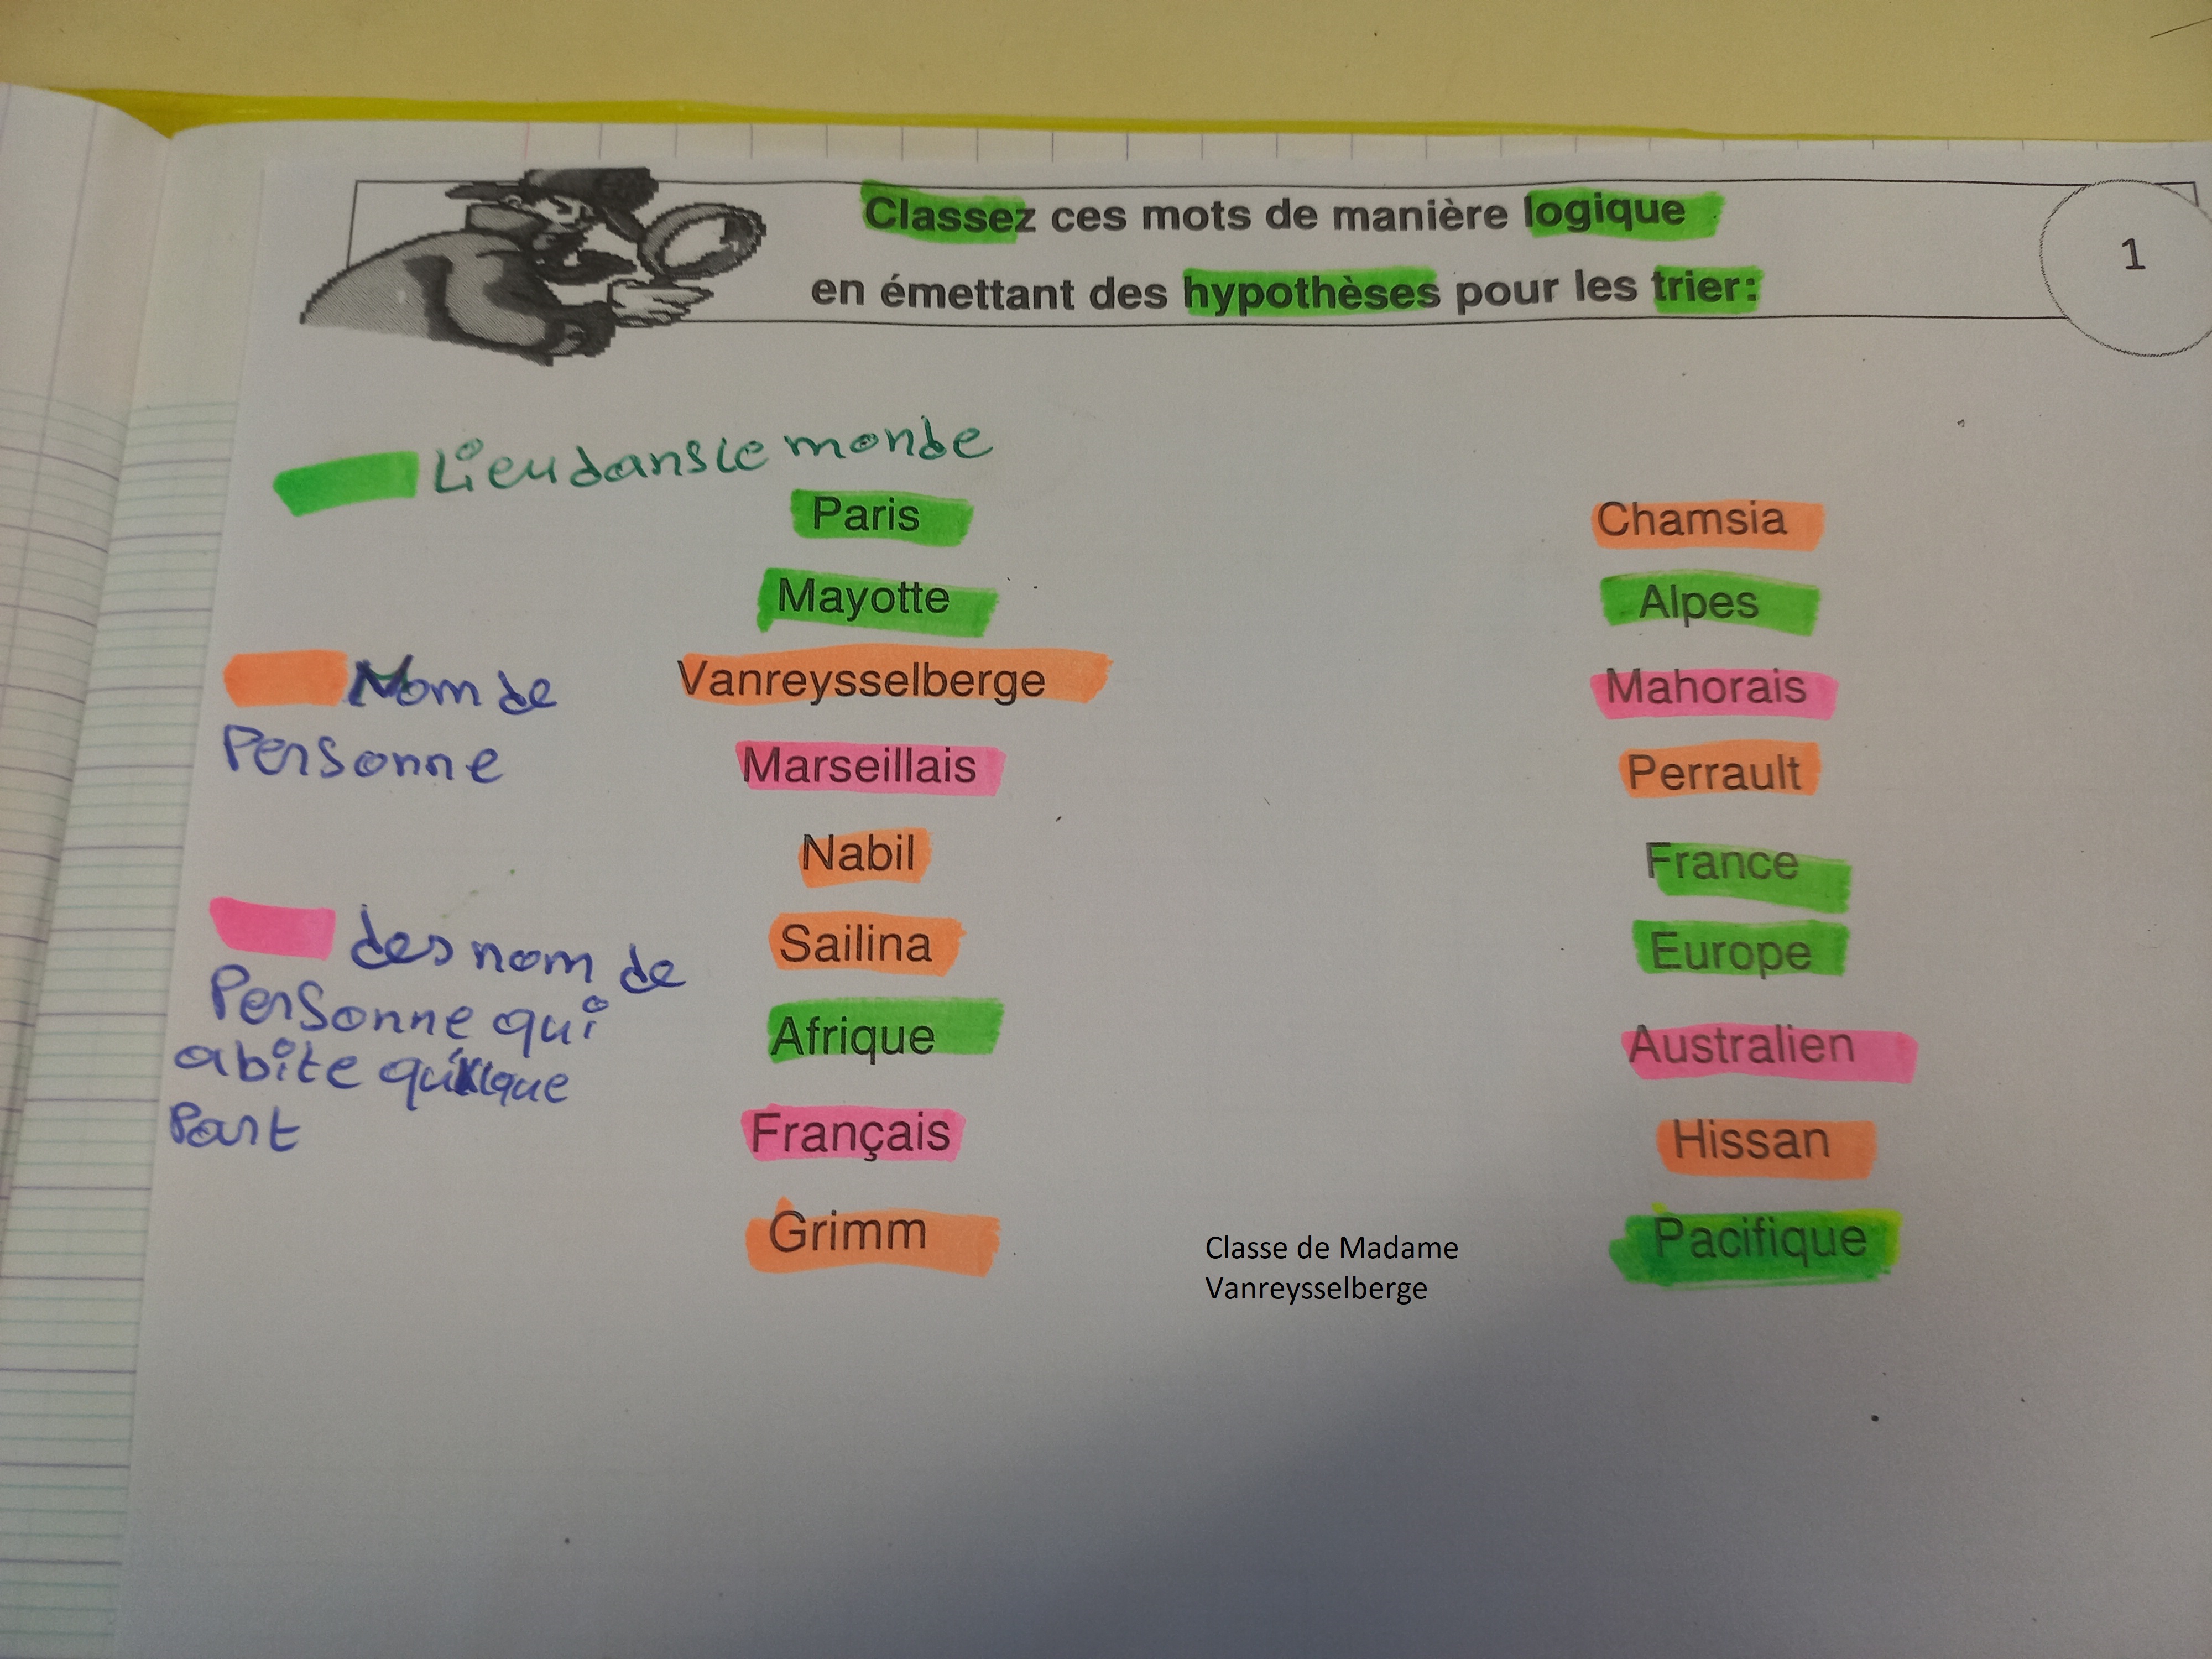 Classez ces mots de manière logique
en émettant des hypothèses pour les trier:
1
Lieu dans le monde
Paris
Mayotte
Nom de
Personne
Vanreysselberge
Marseillais
Nabil
des nom de
Personne qui
abite quelque
Part
Sailina
Afrique
Français
Grimm
Chamsia
Alpes
Mahorais
Perrault
France
Europe
Australien
Hissan
Pacifique
Classe de Madame
Vanreysselberge